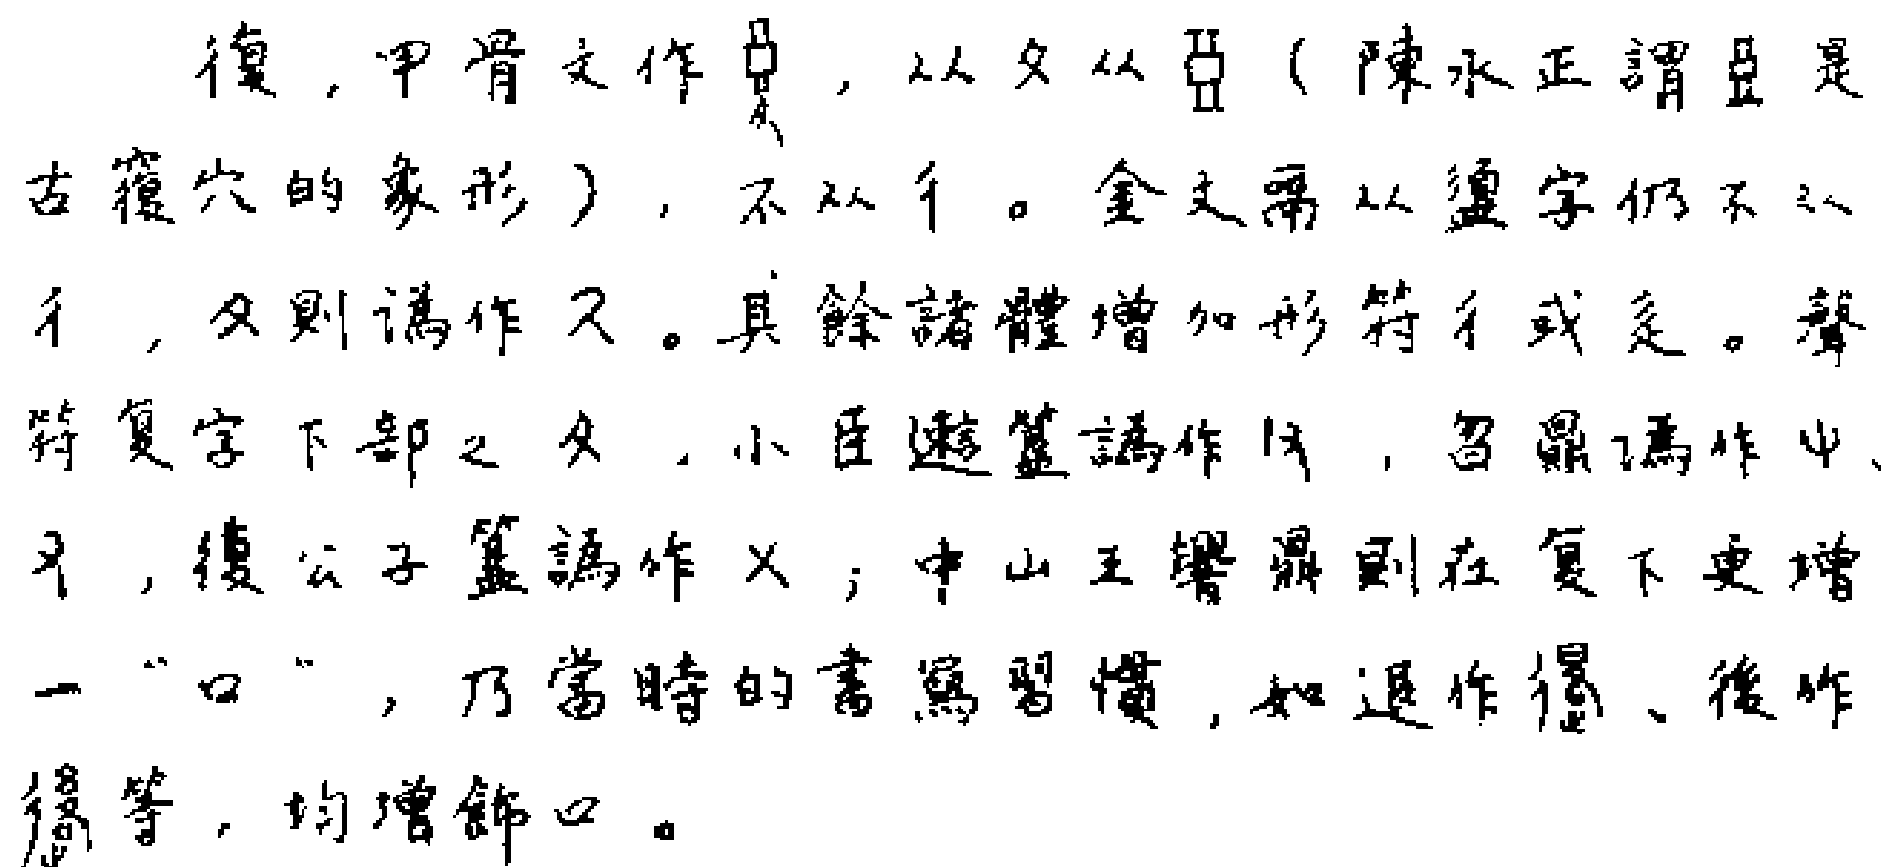 復，甲骨文作，从夊从（陳永正謂是
古覆穴的象形），不从彳。金文鬲从盨字仍不从
彳，夊則譌作又。其餘諸體增加形符彳或辵。聲
符复字下部之夊，小臣簋譌作，曶鼎譌作屮、
又，復公子簋譌作乂；中山王譽鼎則在复下更增
一“口”，乃當時的書寫習慣，如退作、後作
等，均增飾口。